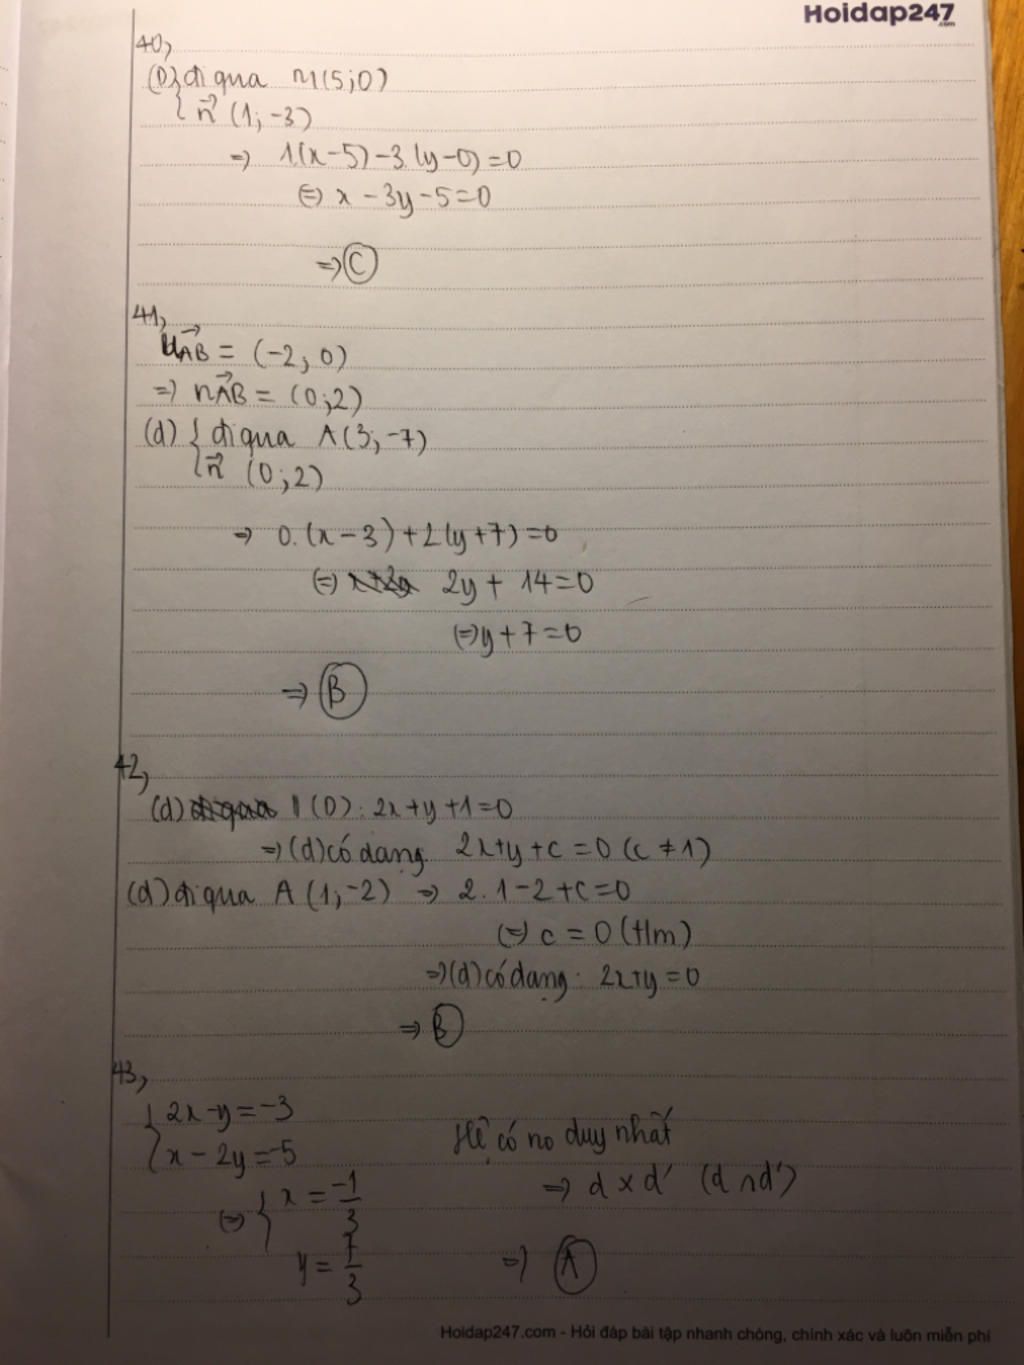 Hoidap247
.com
40,
(D) { đi qua M(5;0)
{ n⃗ (1; -3)
=> 1(x-5)-3.(y-0)=0
(=) x-3y-5=0
=> C
41,
u⃗AB = (-2; 0)
=> n⃗AB = (0;2)
(d) { đi qua A(3;-7)
{ n⃗ (0;2)
=> 0.(x-3)+2(y+7)=0
(=) 2y + 14=0
(=) y+7=0
=> B
42,
(d) // (D): 2x+y+1=0
=> (d) có dạng 2x+y+c=0 (c ≠ 1)
(d) đi qua A (1;-2) => 2.1-2+c=0
(=) c = 0 (t/m)
=> (d) có dạng: 2x+y=0
=> B
43,
{ 2x-y=-3
{ x-2y=-5
Hệ có no duy nhất
=> d x d' (d ∩ d')
(=) { x = -1/3
y = 7/3
=> A
Hoidap247.com - Hỏi đáp bài tập nhanh chóng, chính xác và luôn miễn phí